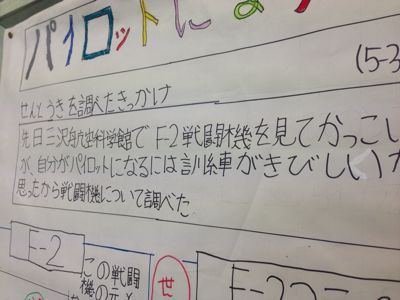 パイロットになり
(5-3
せんとうきを調べたきっかけ
先日三沢航空科学館でF-2戦闘機を見てかっこい
が、自分がパイロットになるには訓練がきびしい
思ったから戦闘機について調べた
F-2
この戦闘
機の
せ